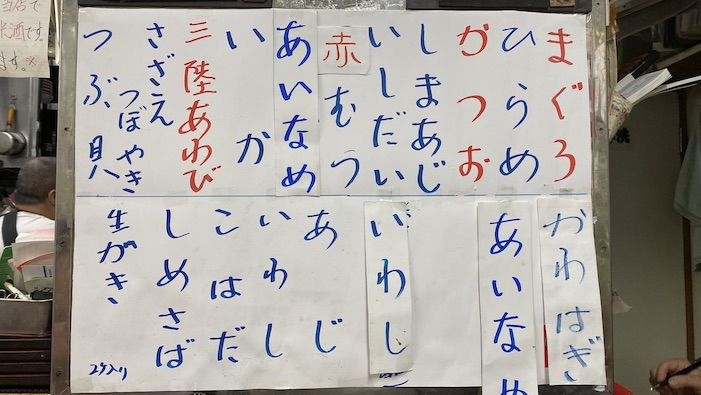 まぐろ
ひらめ
かつお
しまあじ
いしだい
赤むつ
あいなめ
いか
三陸あわび
さざえ
つぼやき
つぶ貝
かわはぎ
あいなめ
いわし
あじ
いわし
こはだ
しめさば
生がき
2ケ入り